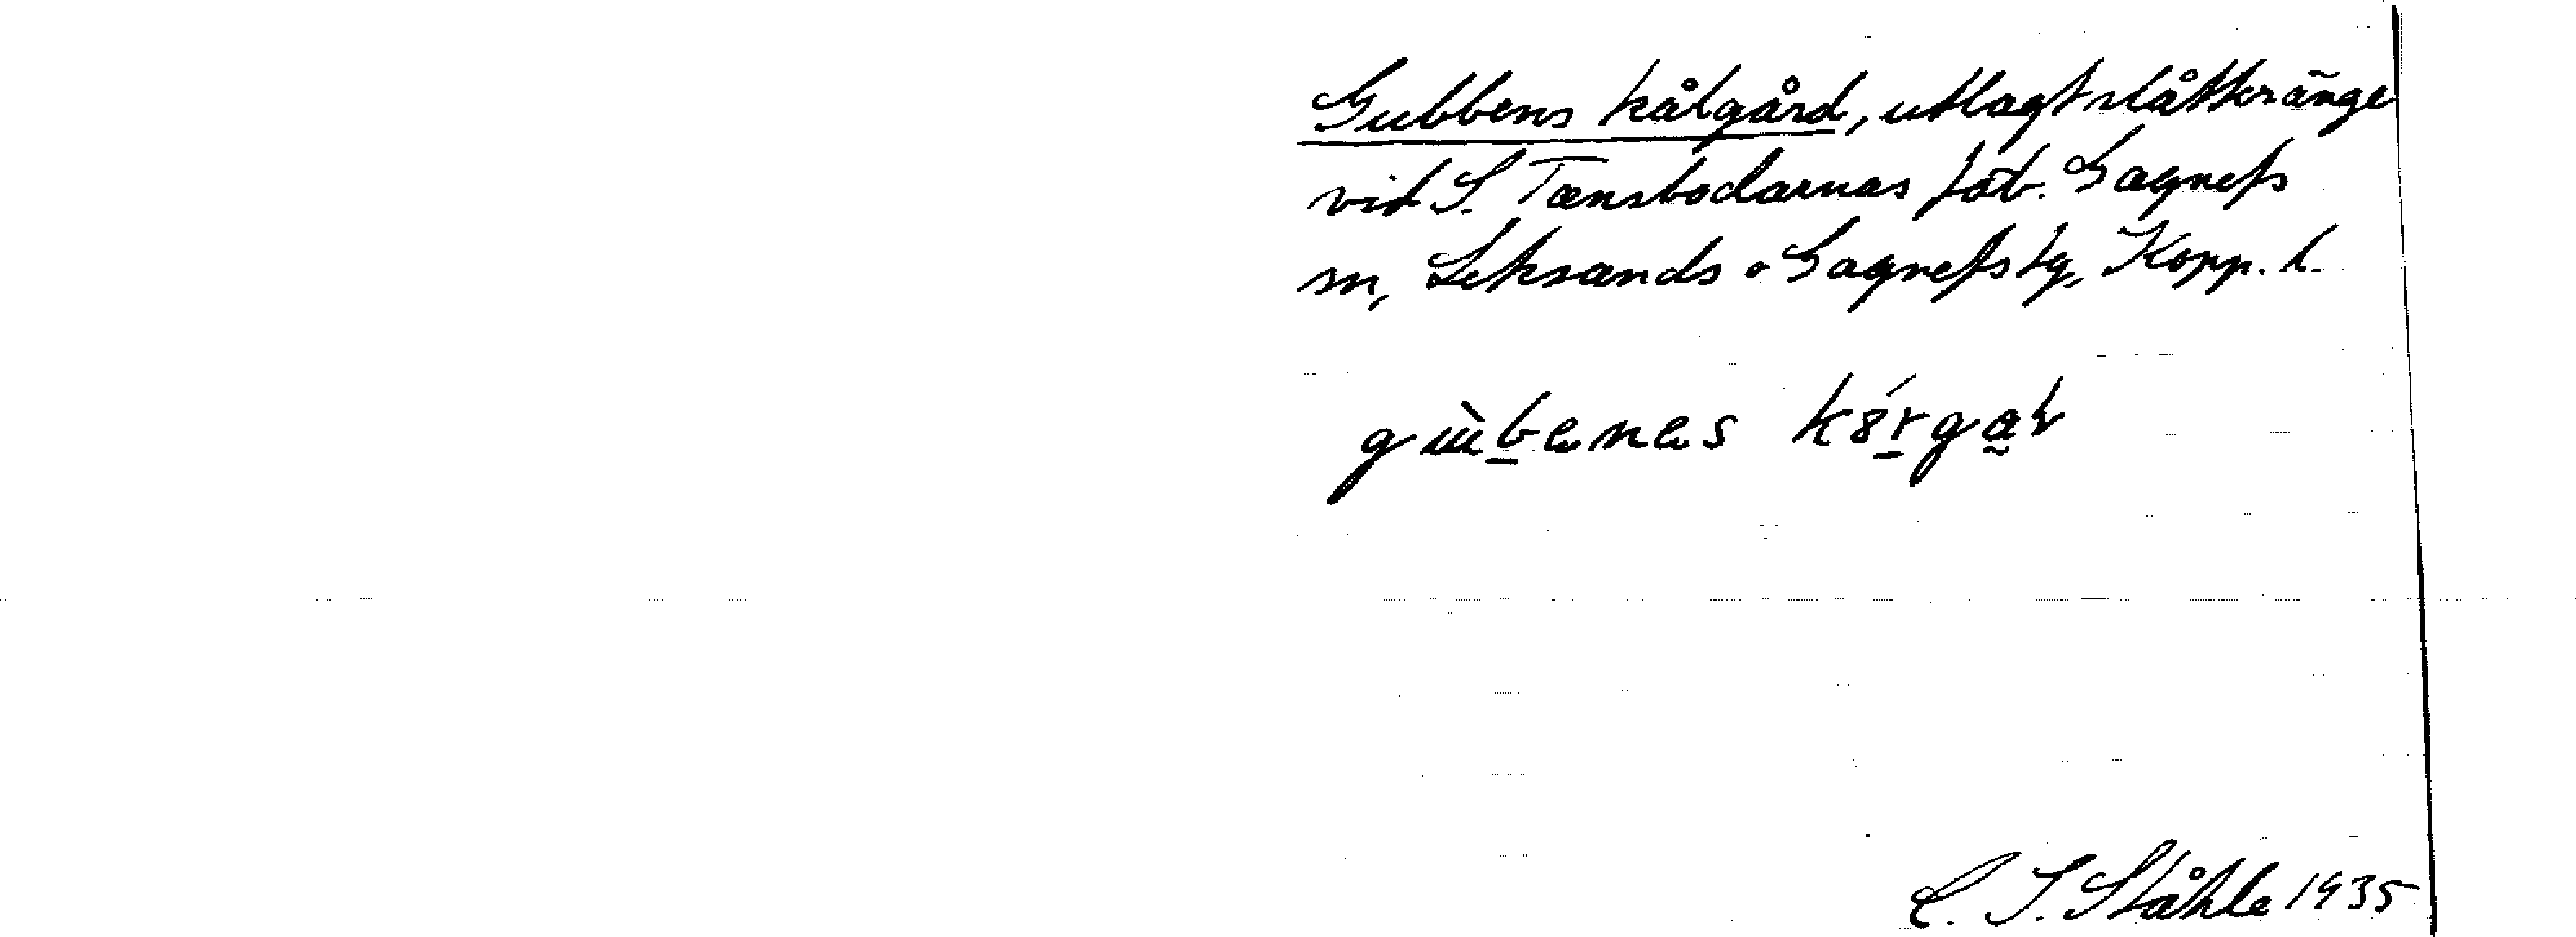 Gubbens kålgård, utlagt slåtteränge
vid S. Tænsbodarnas fäb. Gagnefs
sn, Leksands o Gagnefs tg, Kopp. l.
C. I. Ståhle 1935